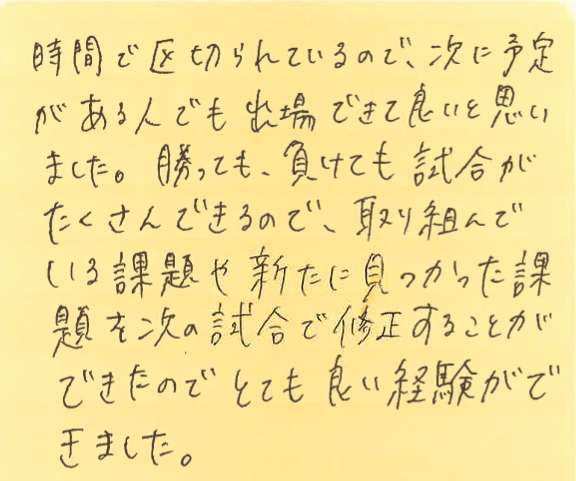 時間で区切られているので、次に予定
がある人でも出場できて良いと思い
ました。勝っても、負けても試合が
たくさんできるので、取り組んで
いる課題や新たに見つかった課
題を次の試合で修正することが
できたのでとても良い経験がで
きました。